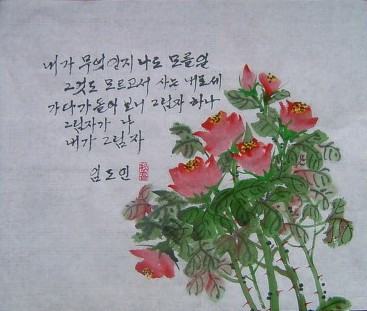 내가 무엇인지 나도 모를일
그것도 모르고서 사는 내모습
가다가 돌아 보니 그림자 하나
그림자가 나
내가 그림자
임도민